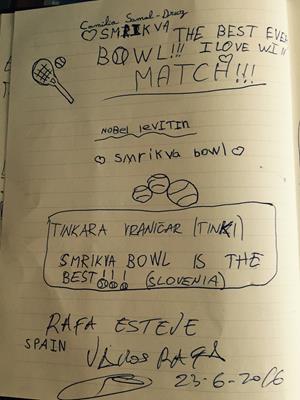 Camilia Samal-Druz
SMRIKVA THE BEST EVER
BOWL!!! I LOVE WIN
MATCH!!!
NOBEL LEVITIN
smrikva bowl
TINKARA VRANIČAR (TINKI)
SMRIKVA BOWL IS THE
BEST!!! (SLOVENIA)
RAFA ESTEVE
SPAIN
23-6-2016